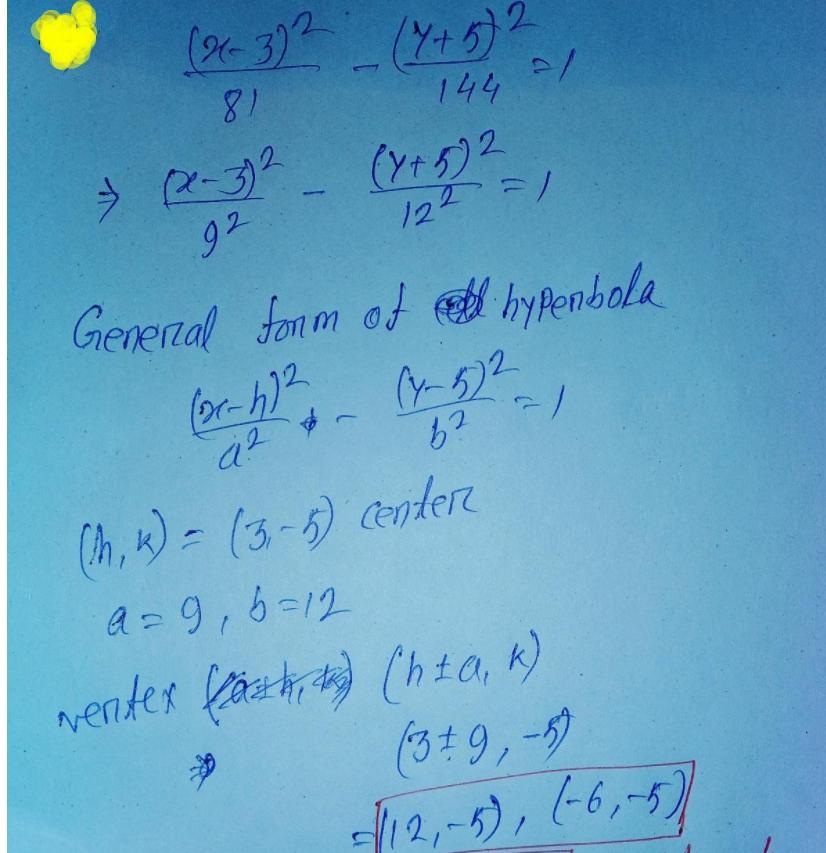 (x-3)²/81 - (y+5)²/144 = 1
⇒ (x-3)²/9² - (y+5)²/12² = 1
General form of hyperbola
(x-h)²/a² - (y-5)²/b² = 1
(h, k) = (3, -5) center
a = 9, b = 12
vertex (h ± a, k)
(3 ± 9, -5)
= (12, -5), (-6, -5)